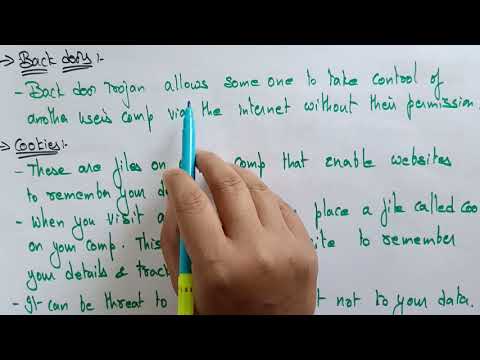 → Back doors :-
- Back door Trojan allows some one to take control of
another user's comp via the internet without their permission.
→ Cookies :-
- These are files on comp that enable websites
to remember your
- When you visit a place a file called Coo
on your comp. This to remember
your details & track
- It can be threat to not to your data.